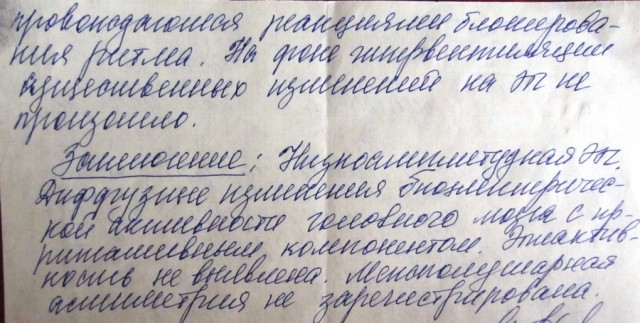 провождающиеся реакциями блокирова-
ния ритма. На фоне гипервентиляции
существенных изменений на ЭГ не
произошло.
Заключение: Низкоамплитудная ЭГ.
Диффузные изменения биоэлектричес-
кой активности головного мозга с ир-
ритативным компонентом. Эпиактив-
ность не выявлена. Межполушарная
асимметрия не зарегистрирована.